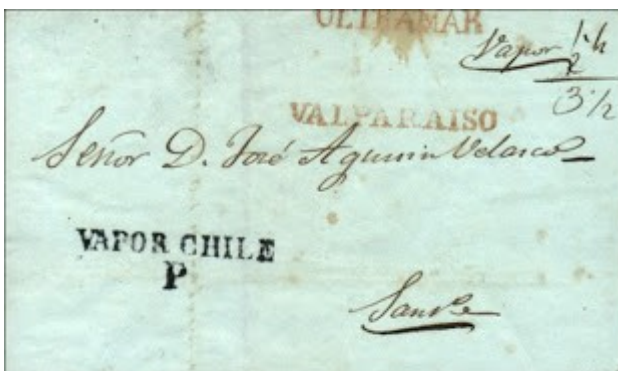 ULTRAMAR
Vapor 1·½
2
3·½
VALPARAISO
Señor D. José Velasco
VAPOR CHILE
P